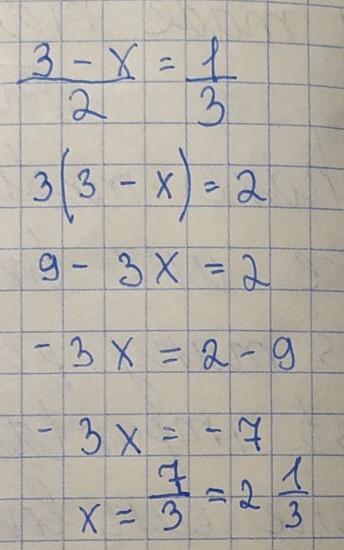 (3 - x)/2 = 1/3
3(3 - x) = 2
9 - 3x = 2
-3x = 2 - 9
-3x = -7
x = 7/3 = 2 1/3